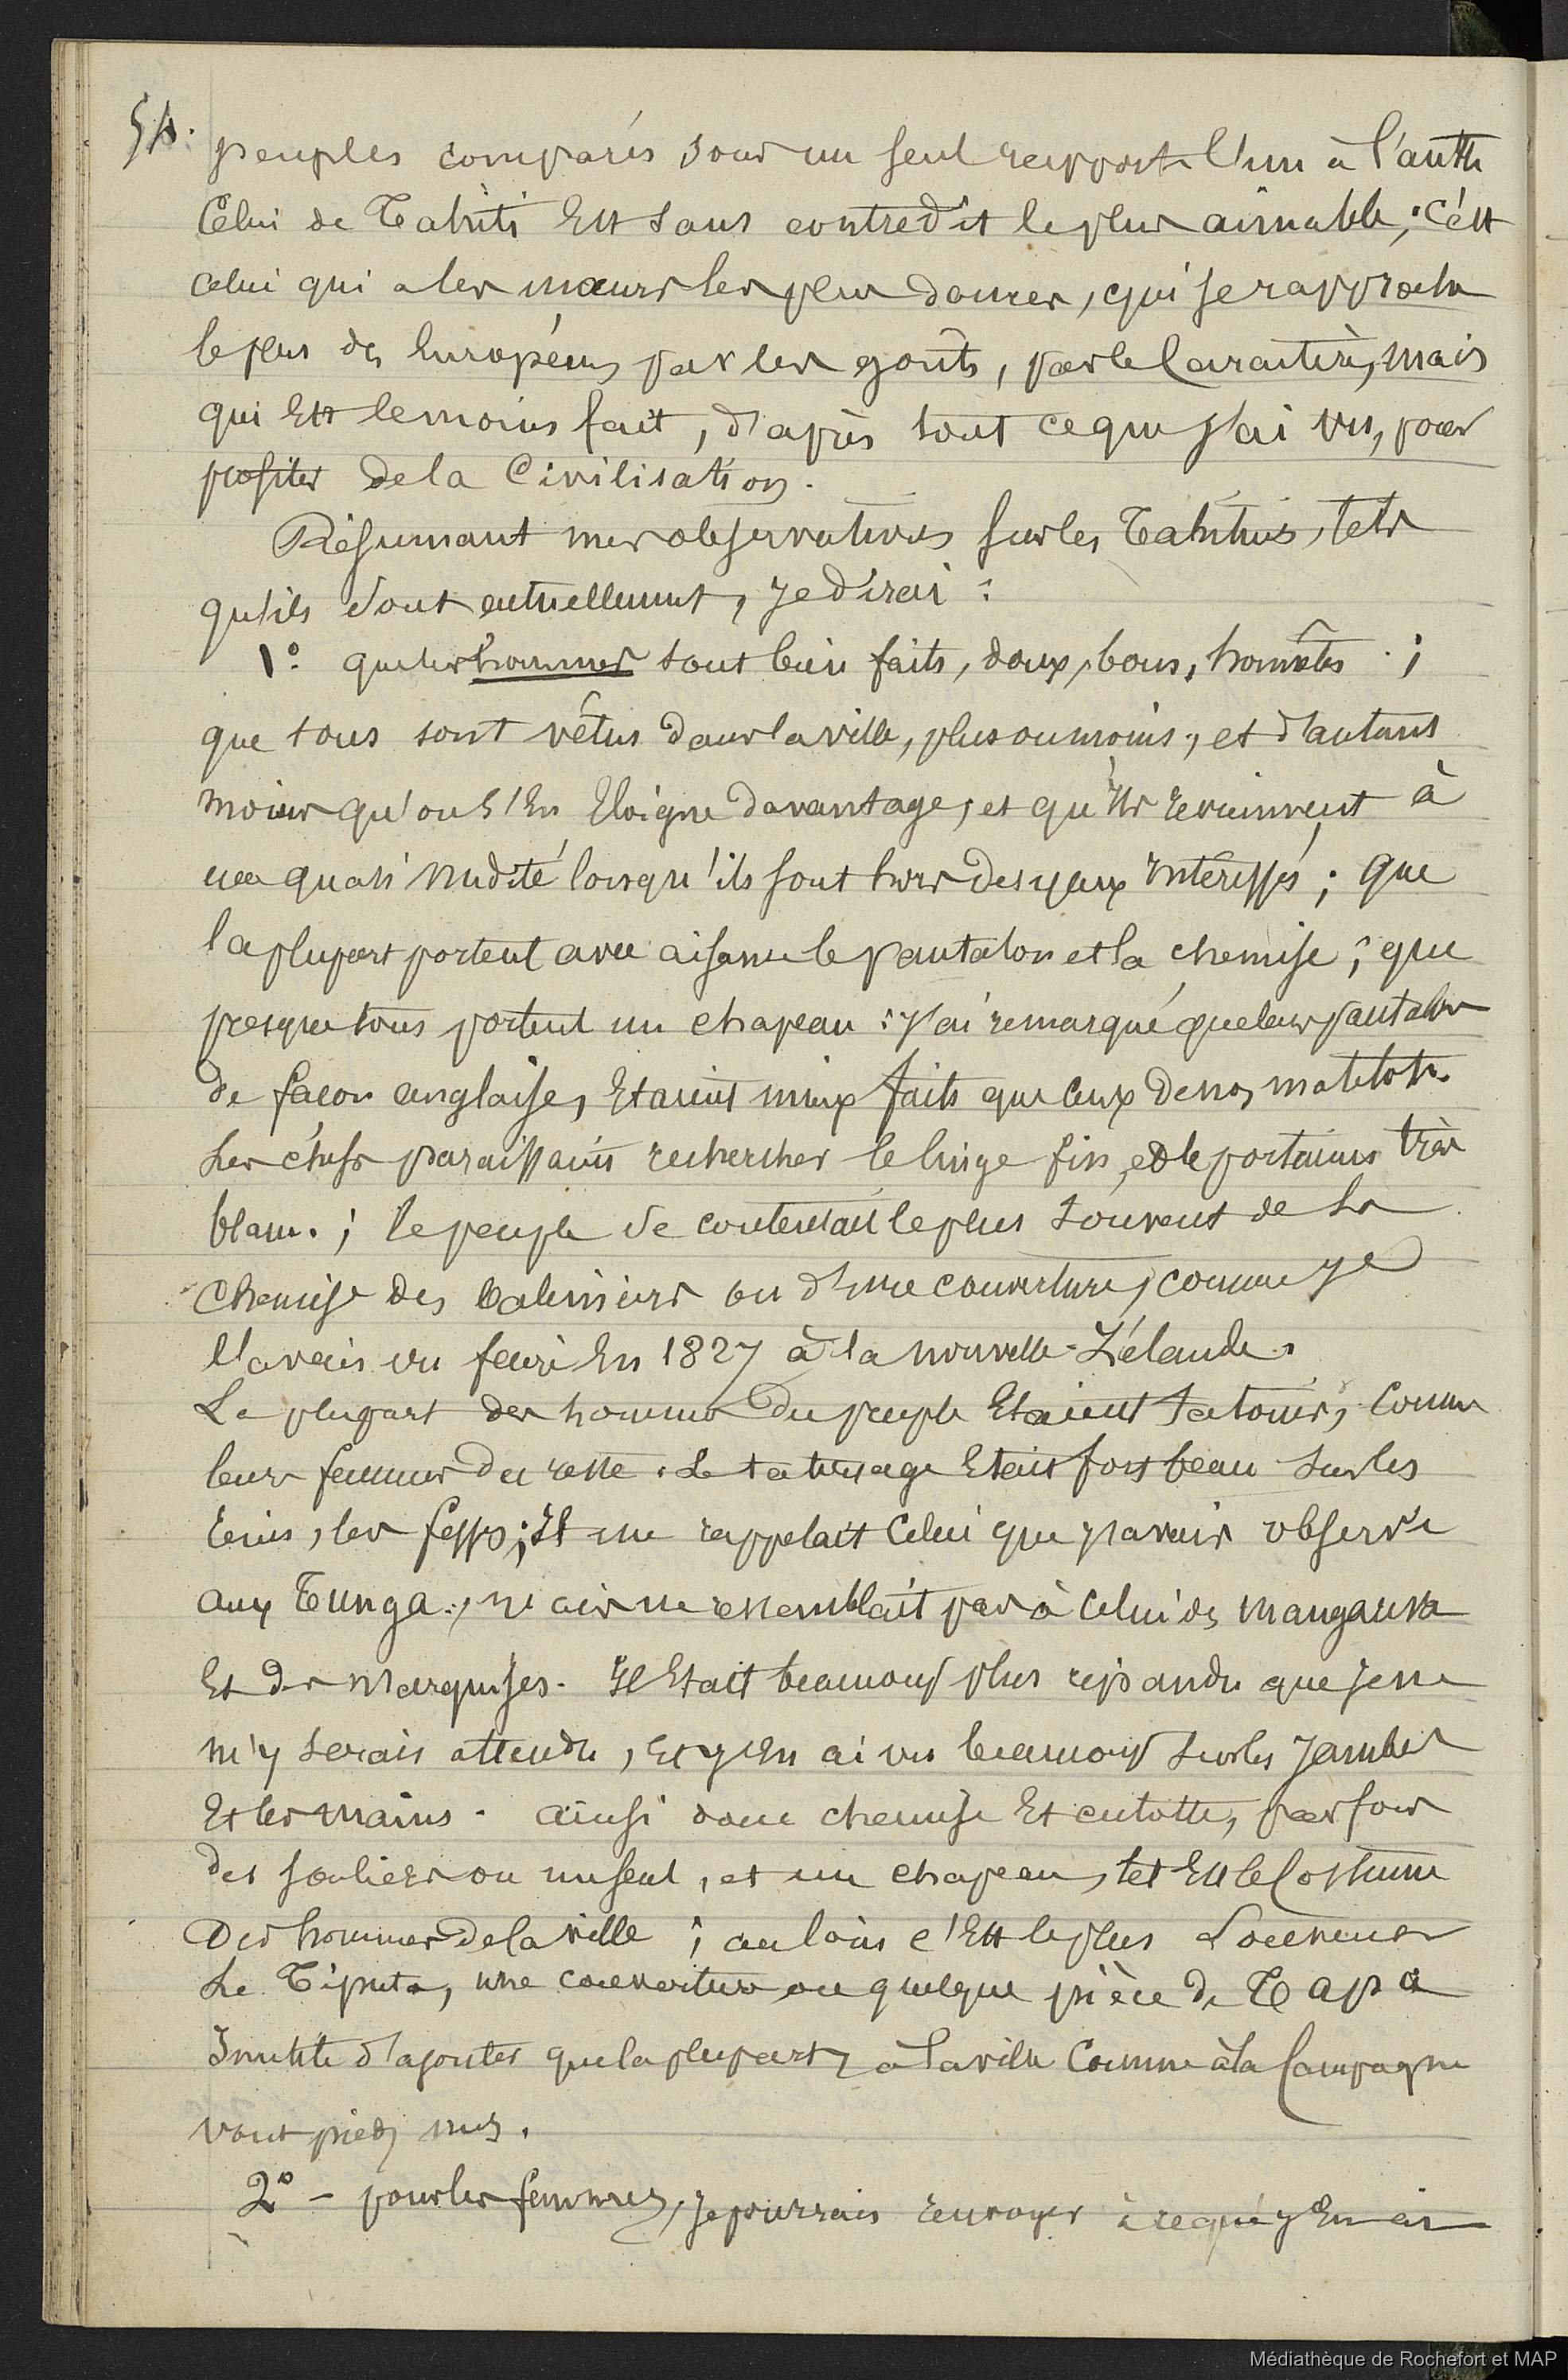 54.
peuples comparés sous un seul rapport l'un à l'autre
Celui de Tahiti Est sans contredit le plus aimable ; C'est
celui qui a les mœurs les plus douces, qui se rapproche
le plus des Européens par les goûts, par le Caractère, mais
qui Est le moins fait, d'après tout ce que j'ai vu, pour
profiter de la Civilisation.
Résumant mes observations sur les Tahitiens, tels
qu'ils sont actuellement, je dirai :
1° que les hommes sont bien faits, doux, bons, honnêtes ;
que tous sont vêtus dans la ville, plus ou moins, et d'autant
moins qu'on s'En Eloigne davantage, et qu'ils reviennent à
une quasi nudité lorsqu'ils sont hors des yeux intéressés ; que
la plupart portent avec aisance le pantalon et la chemise ; que
presque tous portent un chapeau : j'ai remarqué que leurs pantalons
de façon anglaise, Etaient mieux faits que ceux de nos matelots.
Les chefs paraissaient rechercher le linge fin, et le portaient très
blanc. ; le peuple se contentait le plus souvent de la
chemise des baleiniers ou d'une couverture, comme je
l'avais vu faire En 1827 à la nouvelle-Zélande.
La plupart des hommes du peuple Etaient tatoués, comme
leurs femmes du reste. Le tatouage Etait fort beau sur les
reins, les fesses ; Il me rappelait Celui que j'avais observé
aux Tunga., mais ne ressemblait pas à Celui des mangareva
Et des Marquises. Il Etait beaucoup plus répandu que je ne
m'y serais attendu, Et j'En ai vu beaucoup sur les jambes
Et les mains. ainsi donc chemise Et culotte, parfois
des souliers ou un seul, et un chapeau, tel Est le Costume
Des hommes de la ville ; au loin c'Est le plus souvent
Le Tiputa, une couverture ou quelque pièce de Tapa
Inutile d'ajouter que la plupart, à la ville Comme à la Campagne
vont pieds nus.
2° - pour les femmes, je pourrais renvoyer à ce que j'En ai